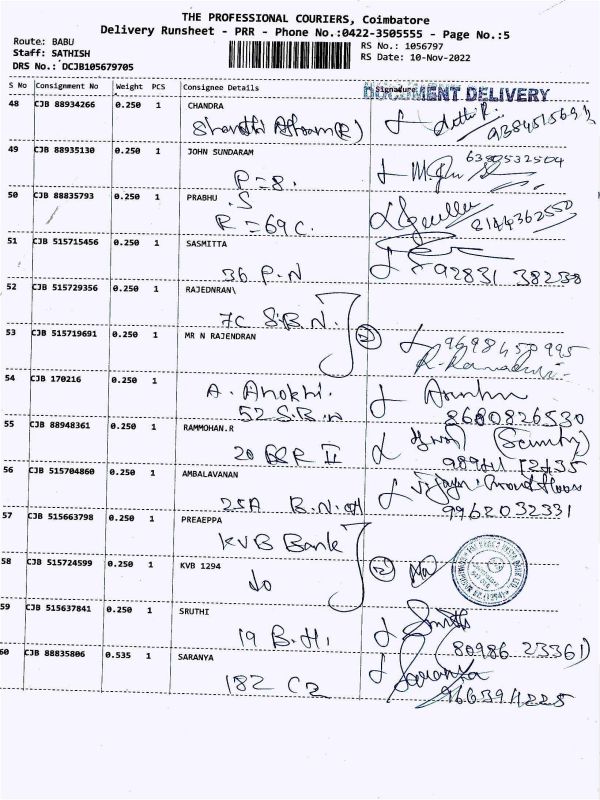 THE PROFESSIONAL COURIERS, Coimbatore
Delivery Runsheet - PRR - Phone No.:0422-3505555 - Page No.:5
Route: BABU
Staff: SATHISH
DRS No.: DCJB105679705
RS No.: 1056797
RS Date: 10-Nov-2022
S No Consignment No Weight PCS Consignee Details Signature
DOCUMENT DELIVERY
48 CJB 88934266 0.250 1 CHANDRA
49 CJB 88935130 0.250 1 JOHN SUNDARAM
6380532504
P=8.
50 CJB 88835793 0.250 1 PRABHU .S
R=69C. 2144362550
51 CJB 515715456 0.250 1 SASMITTA
36 P.N 92831 38238
52 CJB 515729356 0.250 1 RAJEDNRAN\
7C S.B.N.
53 CJB 515719691 0.250 1 MR N RAJENDRAN
9698450995
54 CJB 170216 0.250 1
A.
52 S.B.N 8680826530
55 CJB 88948361 0.250 1 RAMMOHAN.R
(Security)
56 CJB 515704860 0.250 1 AMBALAVANAN
25A B.N.
9962032331
57 CJB 515663798 0.250 1 PREAEPPA
KVB Bank
58 CJB 515724599 0.250 1 KVB 1294
59 CJB 515637841 0.250 1 SRUTHI
19 B.H.
(80986 23361)
60 CJB 88835806 0.535 1 SARANYA
Saranya
182 C2